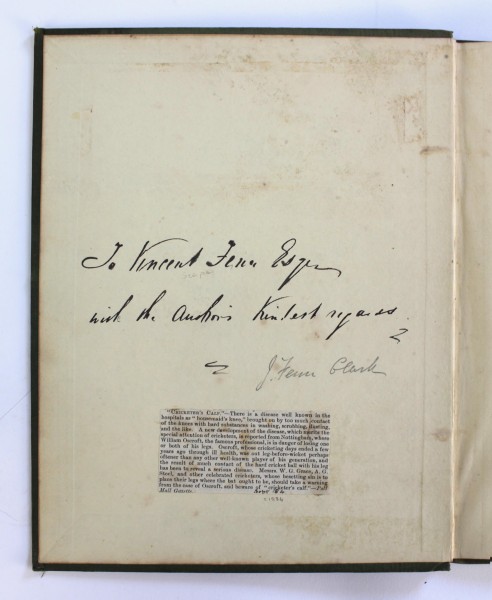 To Vincent Fenn Esqre
with the Author's Kindest regards
J. Fenn Clark
"CRICKETER'S CALF."—There is a disease well known in the
hospitals as "housemaid's knee," brought on by too much contact
of the knees with hard substances in washing, scrubbing, flooring,
and the like. A new development of the disease, which merits the
special attention of cricketers, is reported from Nottingham, where
William Oscroft, the famous professional, is in danger of losing one
or both of his legs. Oscroft, whose cricketing days ended a few
years ago through ill health, was out leg-before-wicket perhaps
oftener than any other well-known player of his generation, and
the result of much contact of the hard cricket ball with his leg
has been to reveal a serious disease. Messrs W. G. Grace, A. G.
Steel, and other celebrated cricketers, whose besetting sin is to
place their legs where the bat ought to be, should take a warning
from the case of Oscroft, and beware of "cricketer's calf."—Pall
Mall Gazette.